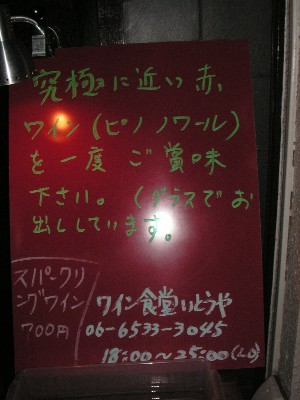 究極に近い赤
ワイン(ピノノワール)
を一度ご賞味
下さい。(グラスでお
出ししています。
スパークリ
ングワイン
700円
ワイン食堂いとうや
06-6533-3045
18:00〜25:00(LO)